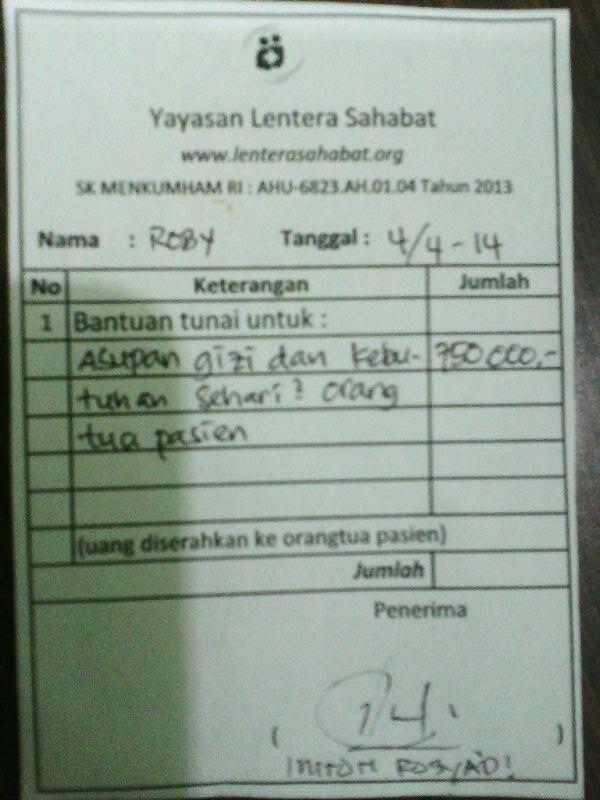 Yayasan Lentera Sahabat
www.lenterasahabat.org
SK MENKUMHAM RI : AHU-6823.AH.01.04 Tahun 2013
Nama : ROBY Tanggal : 4/4-14
No Keterangan Jumlah
1 Bantuan tunai untuk :
Asupan gizi dan kebu- 750.000,-
tuhan sehari2 orang
tua pasien
(uang diserahkan ke orangtua pasien)
Jumlah
Penerima
( )
ROSYADI